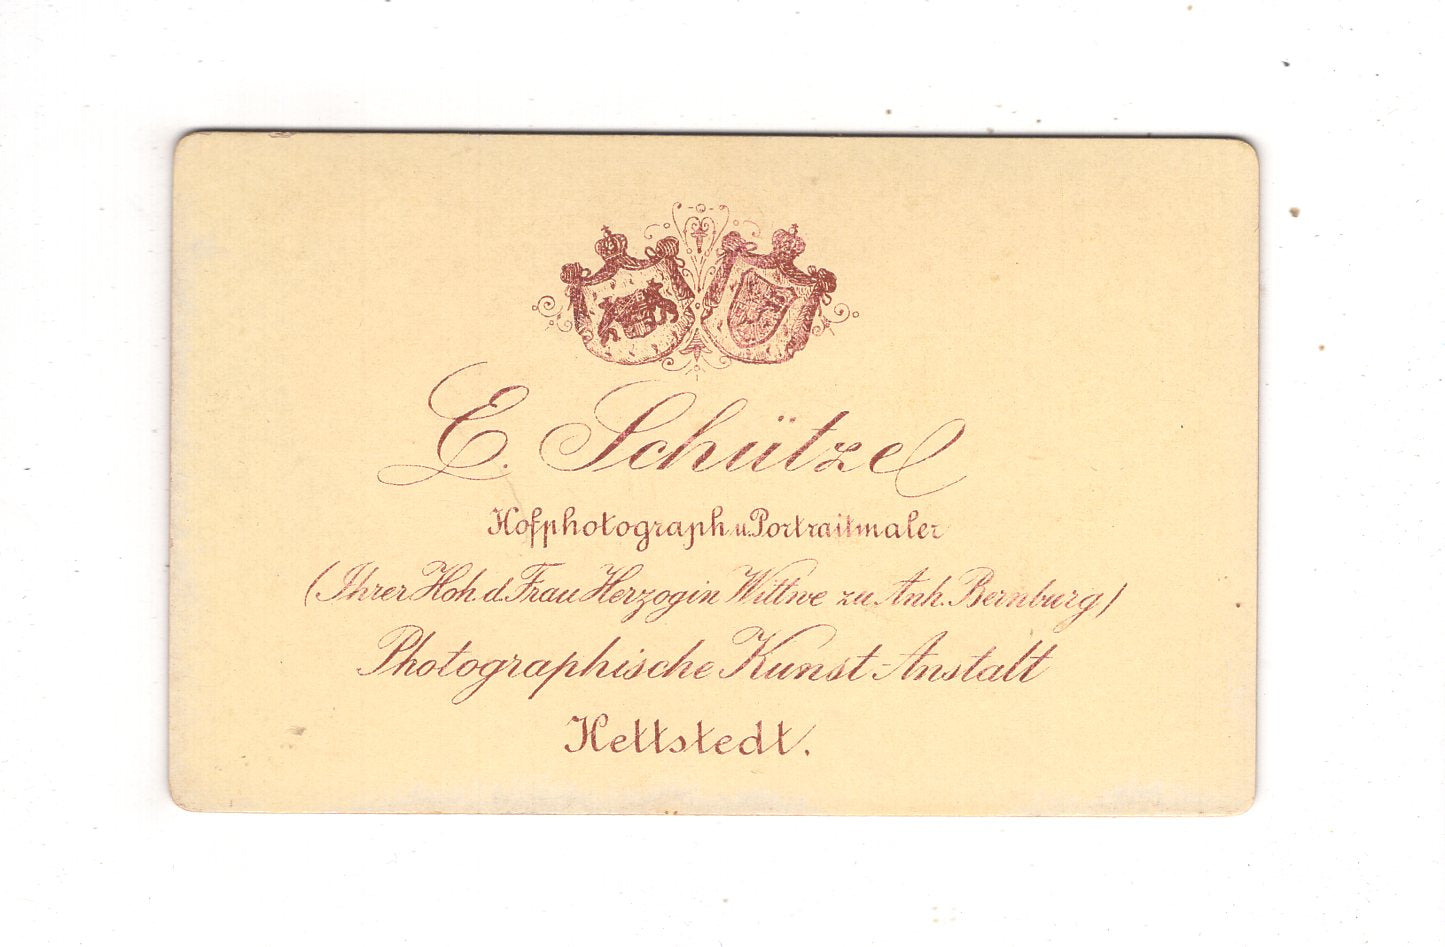 E. Schütze
Hofphotograph u. Portraitmaler
(Ihrer Hoh. d. Frau Herzogin Wittwe zu Anh. Bernburg)
Photographische Kunst-Anstalt
Hettstedt.